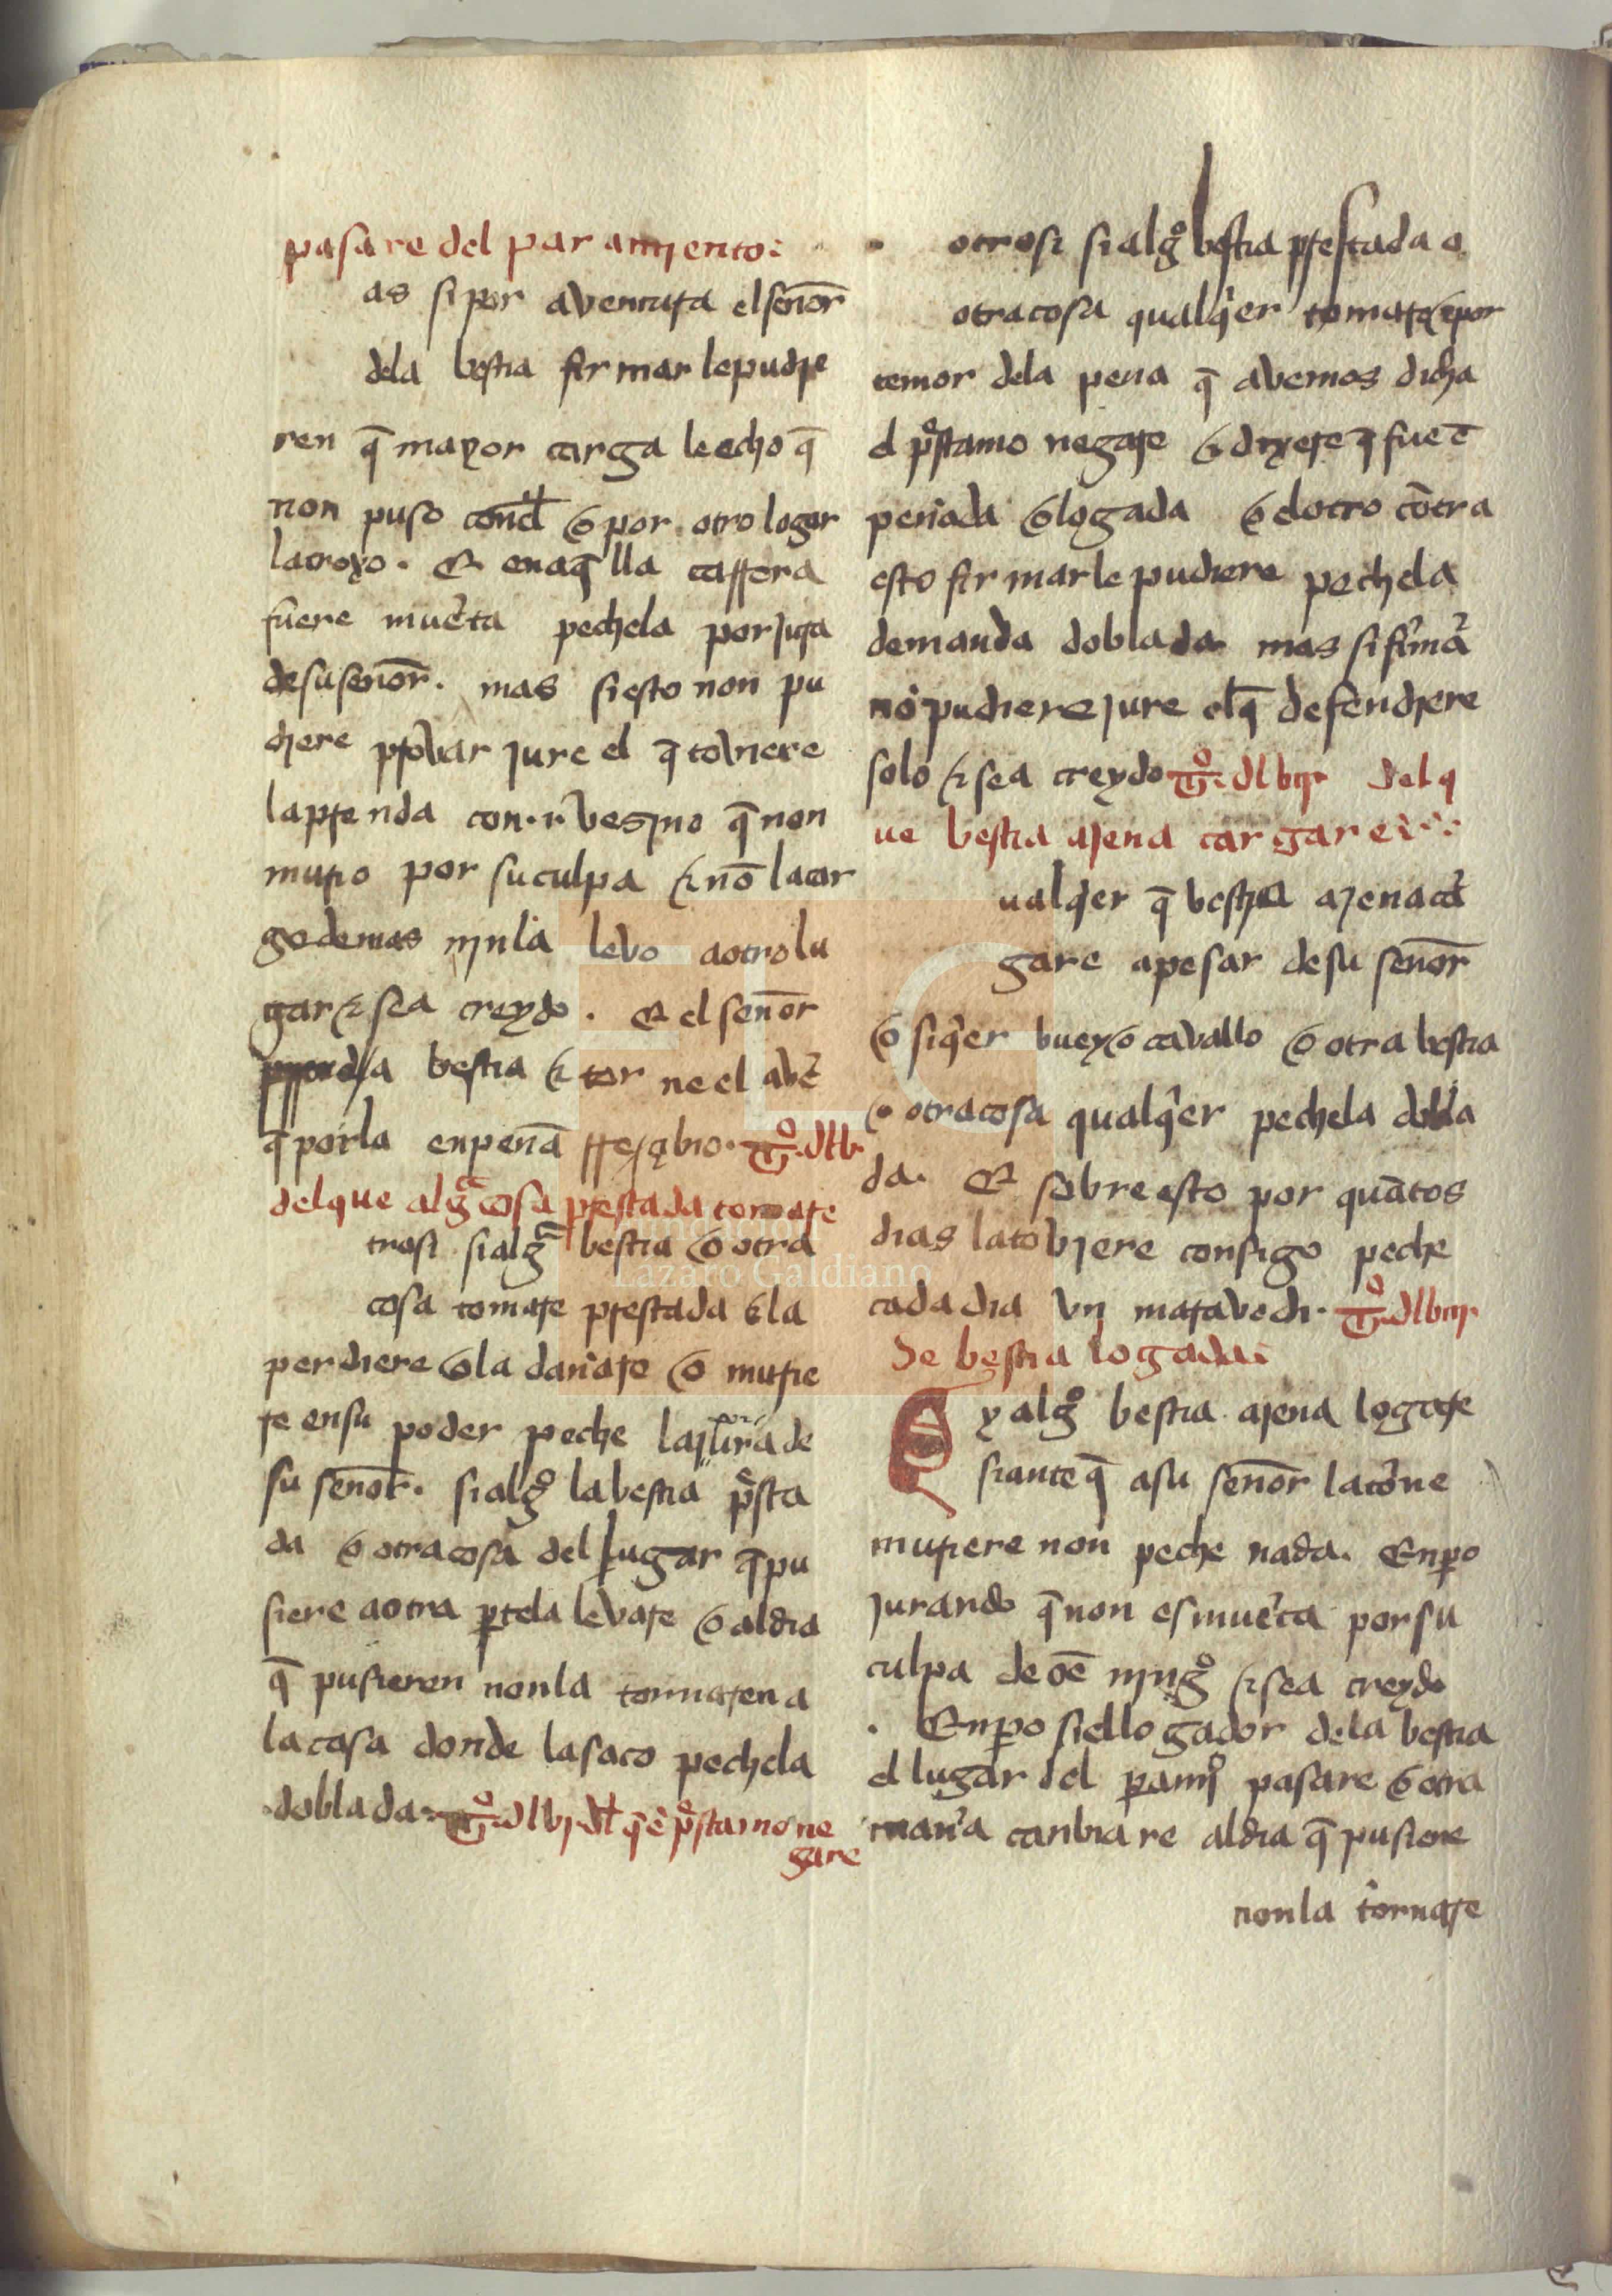 pasare del paramiento:
as si por aventura el señor
dela bestia firmar le pudie
ren q̄ mayor carga le echo q̄
non puso con el o por otro logar
la troxo. Et en aq̄lla carrera
fuere mu̓ta pechela por jura
de su señor. mas si esto non pu
diere provar jure el q̄ toviere
la prenda con .i. vesino q̄ non
murio por su culpa & nō la car
go demas nin la levo a otro lu
gar & sea creydo. Et el señor
pierda bestia & torne el aver
q̄ por la enpeñā rresçibio. tº. dlv.
del que algª cosa prestada tomare
trosi si algª bestia o otra
cosa tomare prestada & la
perdiere o la dañare o murie
re en su poder peche la por jura de
su señor. si algº la bestia p̊sta
da o otra cosa del lugar q̄ pu
siere a otra p̱te la levare o al dia
q̄ pusieren non la tornaren a
la casa donde la saco pechela
doblada. tº. dlvj. dl q̄ el p̊stamo ne
gare
otrosi si algº bestia prestada o
otra cosa qualq̇er tomare & por
temor dela pena q̄ avemos dicha
el p̊stamo negare o dixere q̄ fue ē
peñada o logada & el otro cōtra
esto firmar le pudiere pechela
demanda doblada mas si firmar
nō pudiere jure el q̄ defendiere
solo & sea creydo tº. dlvij del q
ue bestia ajena cargare
ualq̇er q̄ bestia ajena car
gare a pesar de su señor
o siq̇er buey o cavallo o otra bestia
o otra cosa qualq̇er pechela dobla
da. Et sobre esto por quātos
dias la toviere consigo peche
cada dia vn maravedi. tº. dlviij
De bestia logada:
Sy algº bestia ajena logare
si ante q̄ a su señor la torne
muriere non peche nada. Enp̱o
jurando q̄ non es mu̓ta por su
culpa de oē ningº & sea creydo
. Enp̱o si el logador dela bestia
el lugar del p̱amiº pasare o otra
man̓a canbiare al dia q̄ pusiere
non la tornare